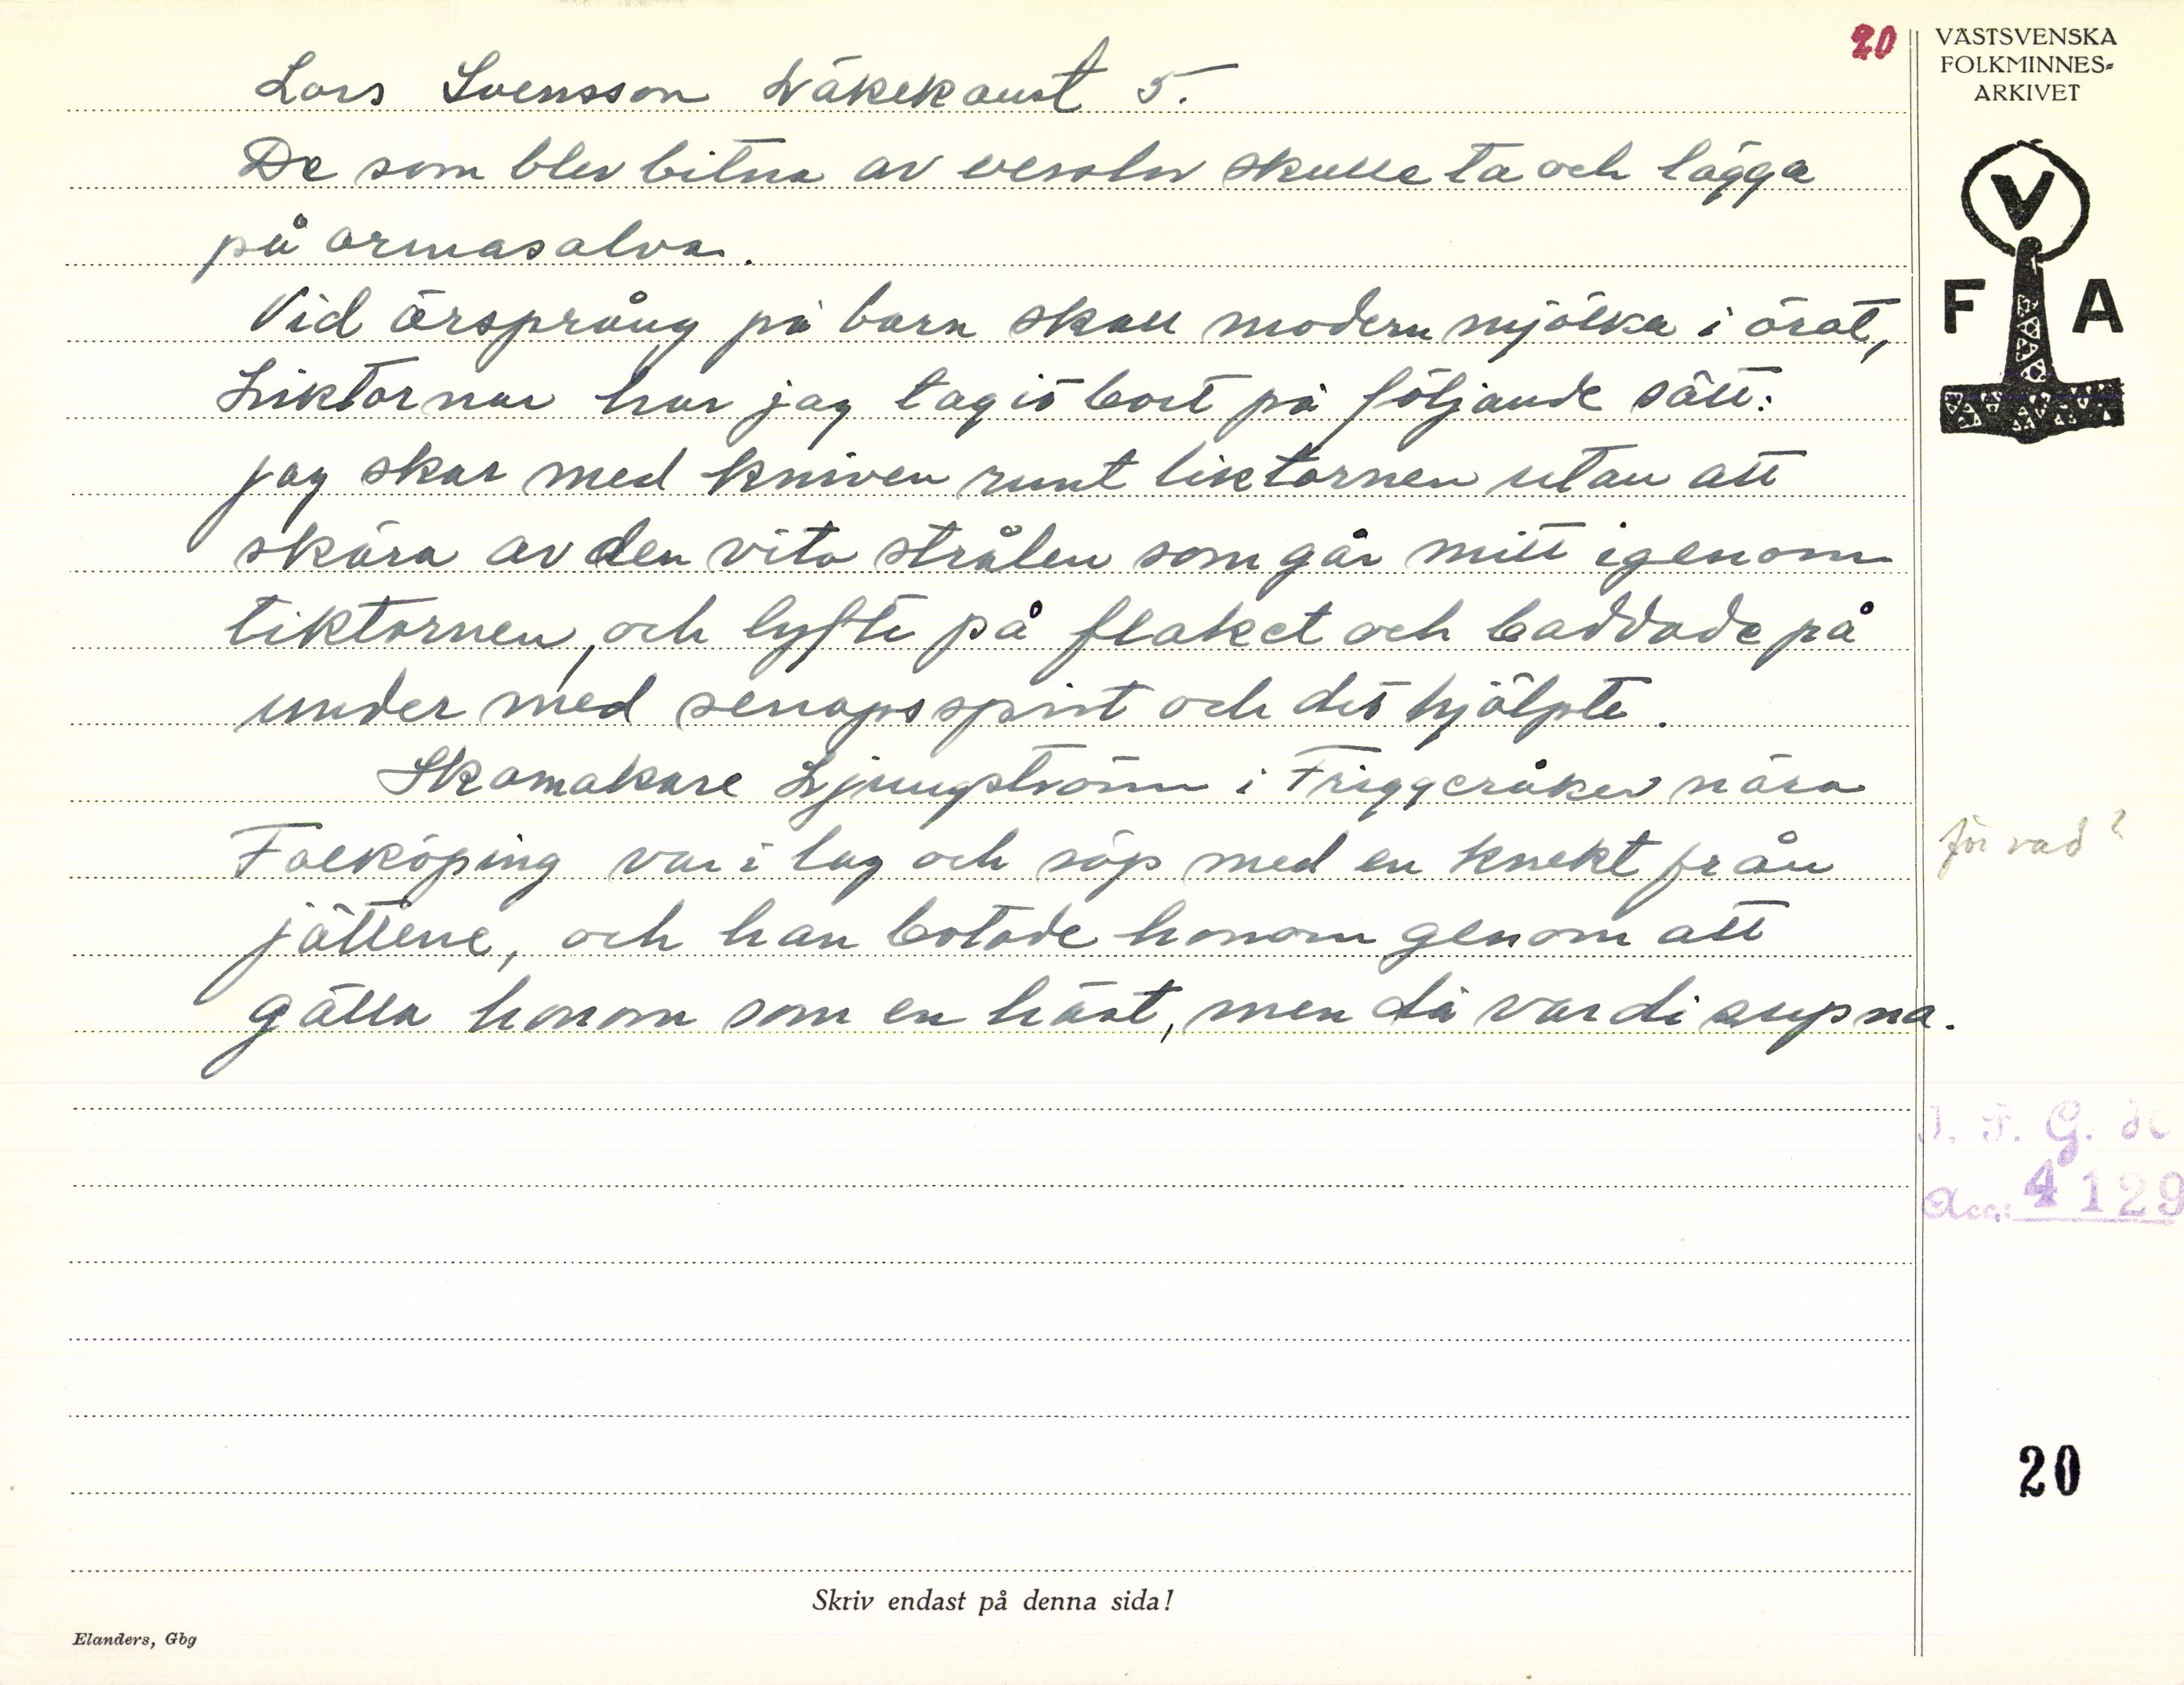 20
VÄSTSVENSKA
FOLKMINNES-
ARKIVET
V
F A
Lars Svensson Läkekonst 5.
De som blev bitna av skulle ta och lägga
på ormasalva.
Vid örsprång på barn skall modern mjölka i örat,
Liktornar har jag tagit bort på följande sätt:
jag skar med kniven runt liktornen utan att
skära av den vita strålen som går mitt igenom
liktornen, och lyfte på flaket och baddade på
under med senapssprit och det hjälpte.
Skomakare Ljungström i Friggeråker nära
Falköping var i lag och söp med en knekt från
för vad?
jättene, och han botade honom genom att
gälla honom som en häst, men då var di supna.
I. F. G. H
Acc: 4129
20
Skriv endast på denna sida!
Elanders, Gbg